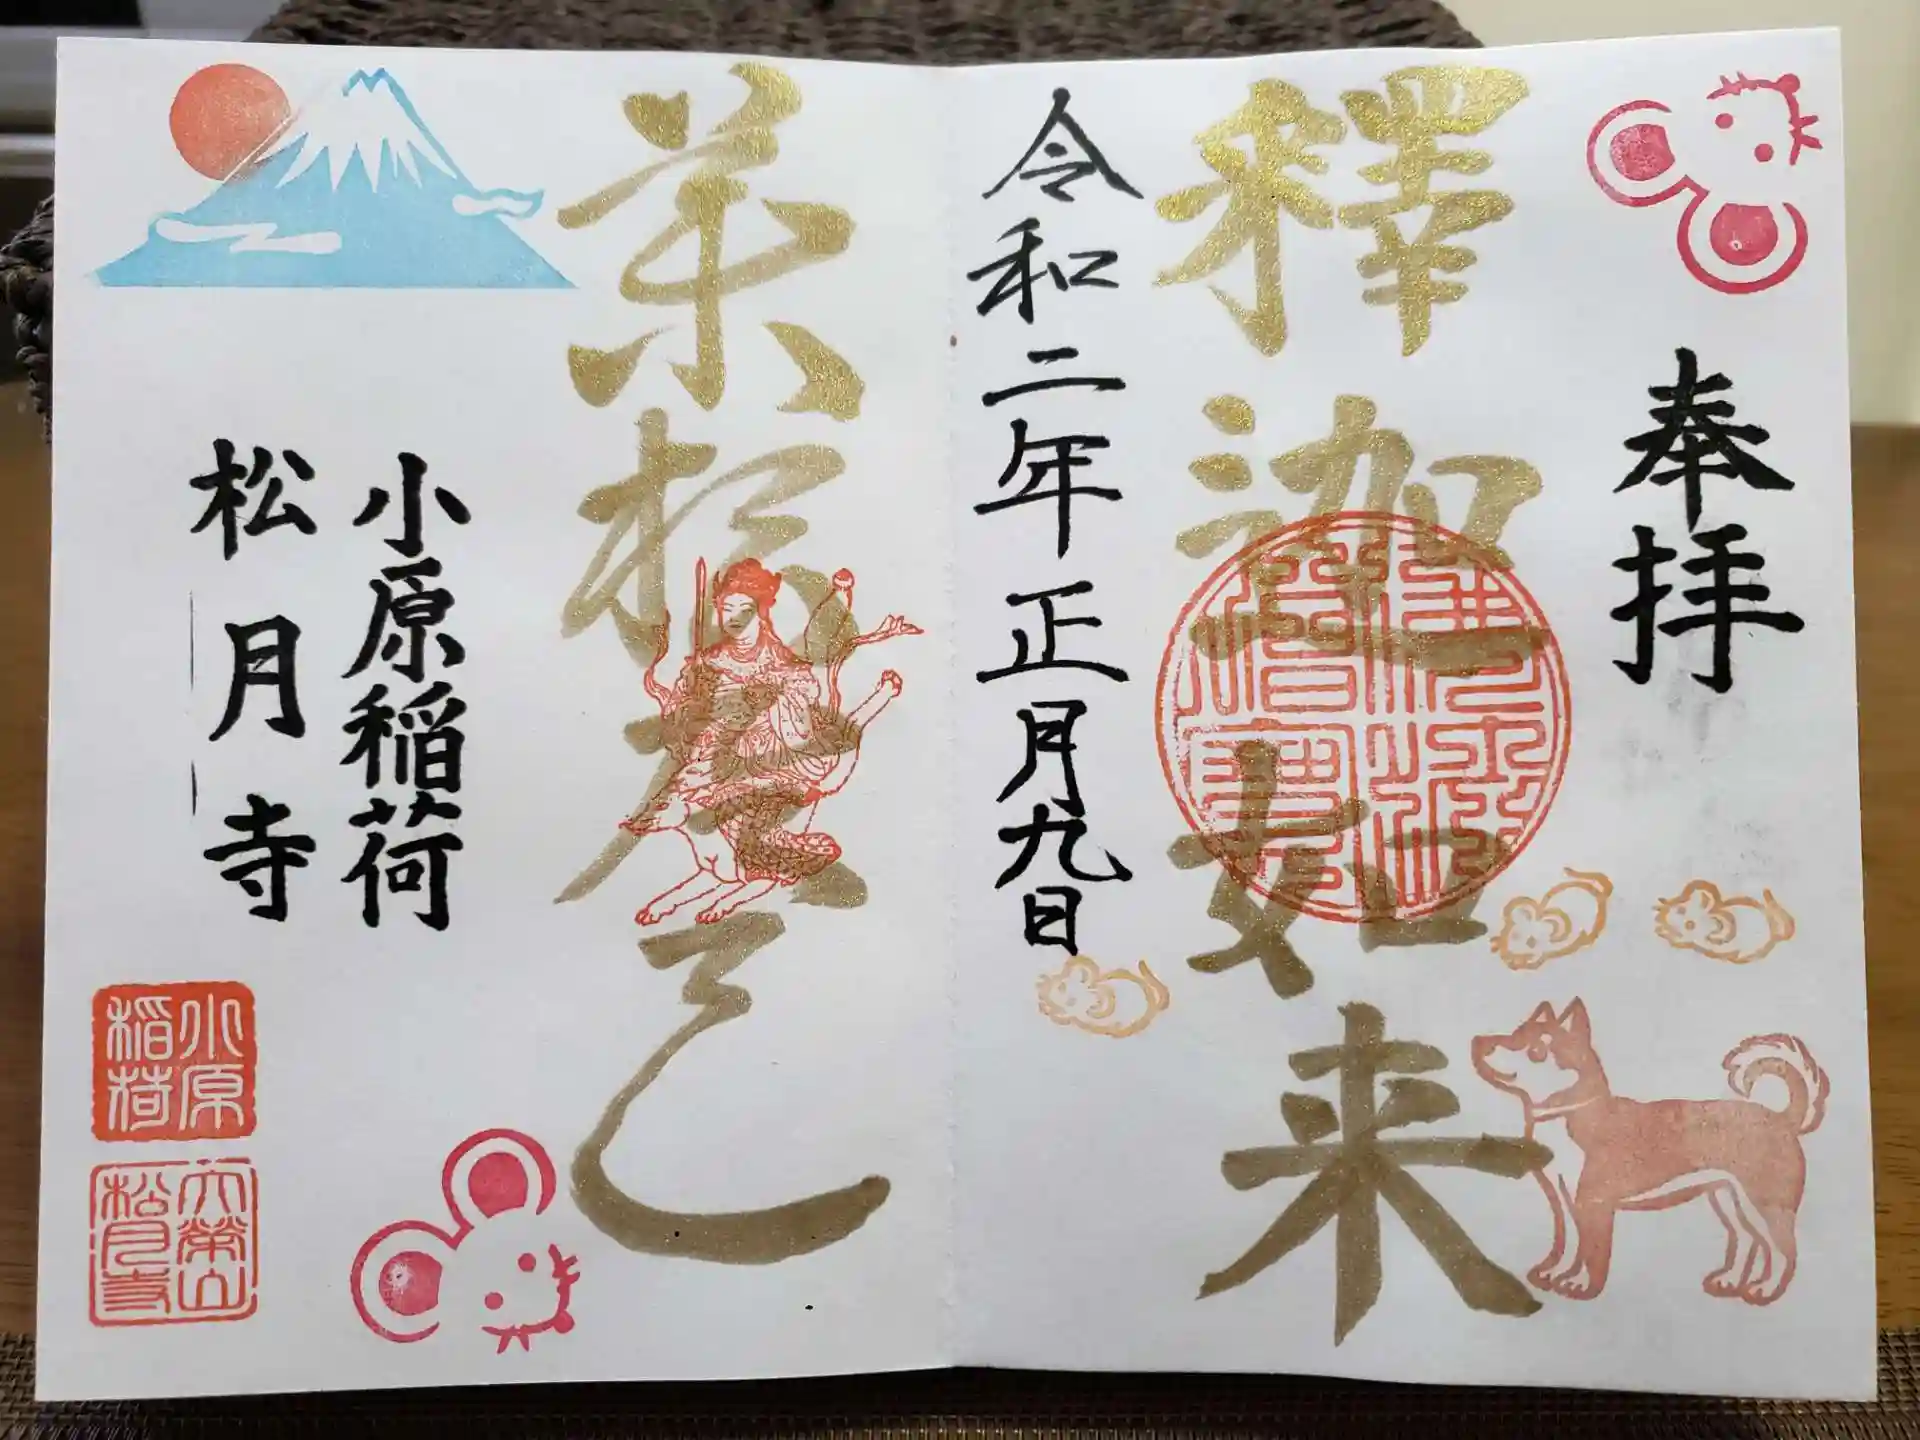 奉拝
釋迦如来
令和二年正月九日
荼枳尼天
小原稲荷
松月寺
小原
稲荷
松月寺